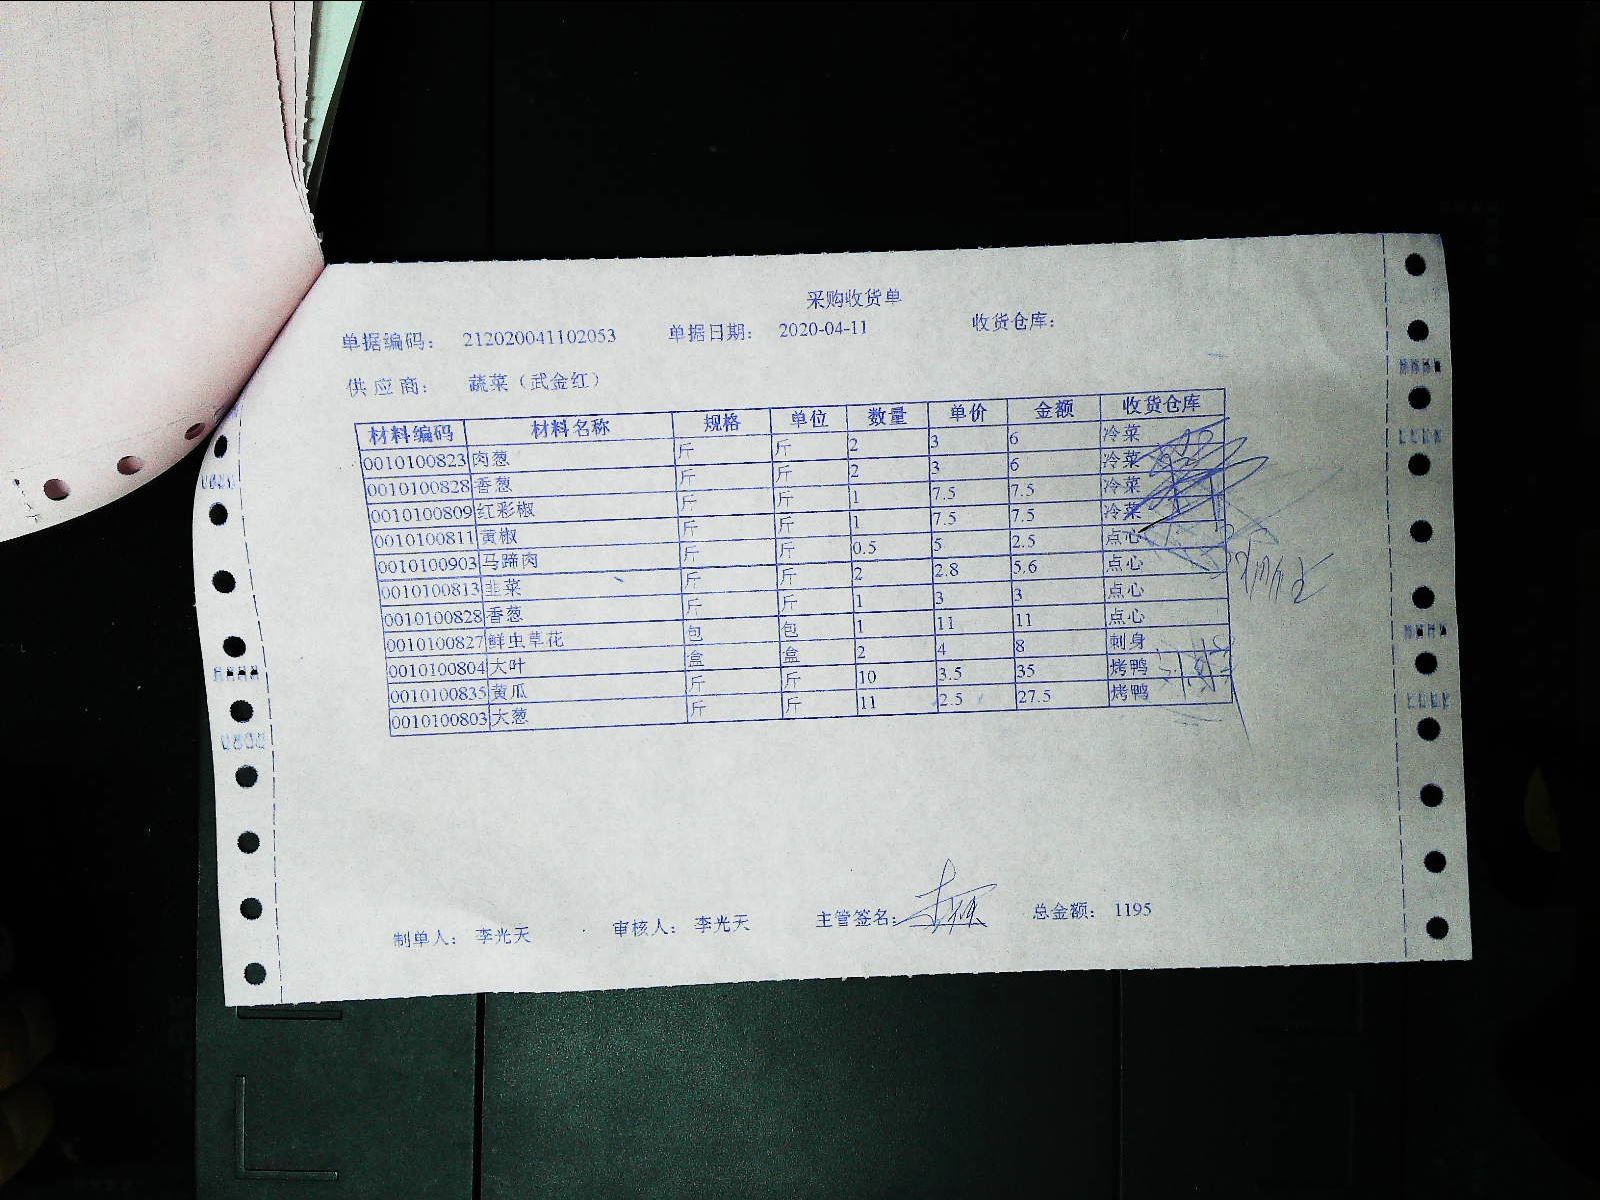 采购收货单
单据编码： 212020041102053 单据日期： 2020-04-11 收货仓库：
供应商： 蔬菜（武金红）
材料编码 材料名称 规格 单位 数量 单价 金额 收货仓库
0010100823 肉葱 斤 斤 2 3 6 冷菜
0010100828 香葱 斤 斤 2 3 6 冷菜
0010100809 红彩椒 斤 斤 1 7.5 7.5 冷菜
0010100811 黄椒 斤 斤 1 7.5 7.5 冷菜
0010100903 马蹄肉 斤 斤 0.5 5 2.5 点心
0010100813 韭菜 斤 斤 2 2.8 5.6 点心
0010100828 香葱 斤 斤 1 3 3 点心
0010100827 鲜虫草花 包 包 1 11 11 点心
0010100804 大叶 盒 盒 2 4 8 刺身
0010100835 黄瓜 斤 斤 10 3.5 35 烤鸭
0010100803 大葱 斤 斤 11 2.5 27.5 烤鸭
制单人： 李光天 审核人： 李光天 主管签名： 总金额： 1195